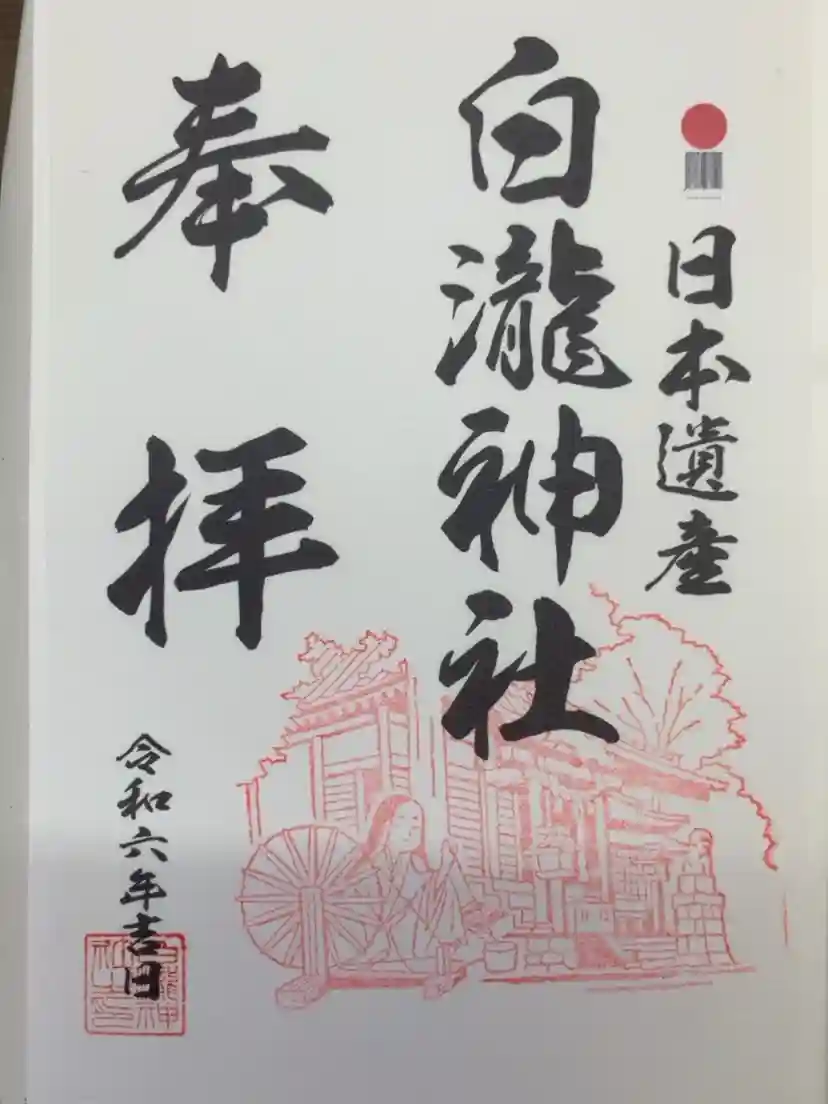 日本遺産
白瀧神社
奉拝
令和六年吉日
白瀧神社之印